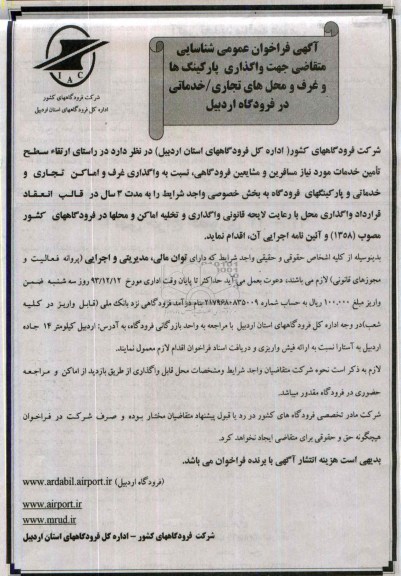 آگهی فراخوان عمومی شناسایی
متقاضی جهت واگذاری پارکینگ ها
و غرف و محل های تجاری/خدماتی
در فرودگاه اردبیل
I A C
شرکت فرودگاههای کشور
اداره کل فرودگاههای استان اردبیل
شرکت فرودگاههای کشور( اداره کل فرودگاههای استان اردبیل) در نظر دارد در راستای ارتقاء سطح
تأمین خدمات مورد نیاز مسافرین و مشایعین فرودگاهی، نسبت به واگذاری غرف و اماکن تجاری و
خدماتی و پارکینگهای فرودگاه به بخش خصوصی واجد شرایط را به مدت ۳ سال در قالب انعقاد
قرارداد واگذاری محل با رعایت لایحه قانونی واگذاری و تخلیه اماکن و محلها در فرودگاههای کشور
مصوب (۱۳۵۸) و آئین نامه اجرایی آن، اقدام نماید.
بدینوسیله از کلیه اشخاص حقوقی و حقیقی واجد شرایط که دارای توان مالی، مدیریتی و اجرایی (پروانه فعالیت و
مجوزهای قانونی) لازم می باشند، دعوت بعمل می آید حداکثر تا پایان وقت اداری مورخ ۹۳/۱۲/۱۲ روز سه شنبه ضمن
واریز مبلغ ۱۰۰,۰۰۰ ریال به حساب شماره ۲۱۷۹۶۸۰۸۳۵۰۰۹ بنام درآمد فرودگاهی نزد بانک ملی (قابل واریز در کلیه
شعب)در وجه اداره کل فرودگاههای استان اردبیل با مراجعه به واحد بازرگانی فرودگاه به آدرس: اردبیل کیلومتر ۱۴ جاده
اردبیل به آستارا نسبت به ارائه فیش واریزی و دریافت اسناد فراخوان اقدام لازم معمول نمایند.
لازم به ذکر است نحوه شرکت متقاضیان واجد شرایط ومشخصات محل قابل واگذاری از طریق بازدید از اماکن و مراجعه
حضوری در فرودگاه مقدور میباشد.
شرکت مادر تخصصی فرودگاه های کشور در رد یا قبول پیشنهاد متقاضیان مختار بوده و صرف شرکت در فراخوان
هیچگونه حق و حقوقی برای متقاضی ایجاد نخواهد کرد.
بدیهی است هزینه انتشار آگهی با برنده فراخوان می باشد.
(فرودگاه اردبیل) www.ardabil.airport.ir
www.airport.ir
www.mrud.ir
شرکت فرودگاههای کشور – اداره کل فرودگاههای استان اردبیل